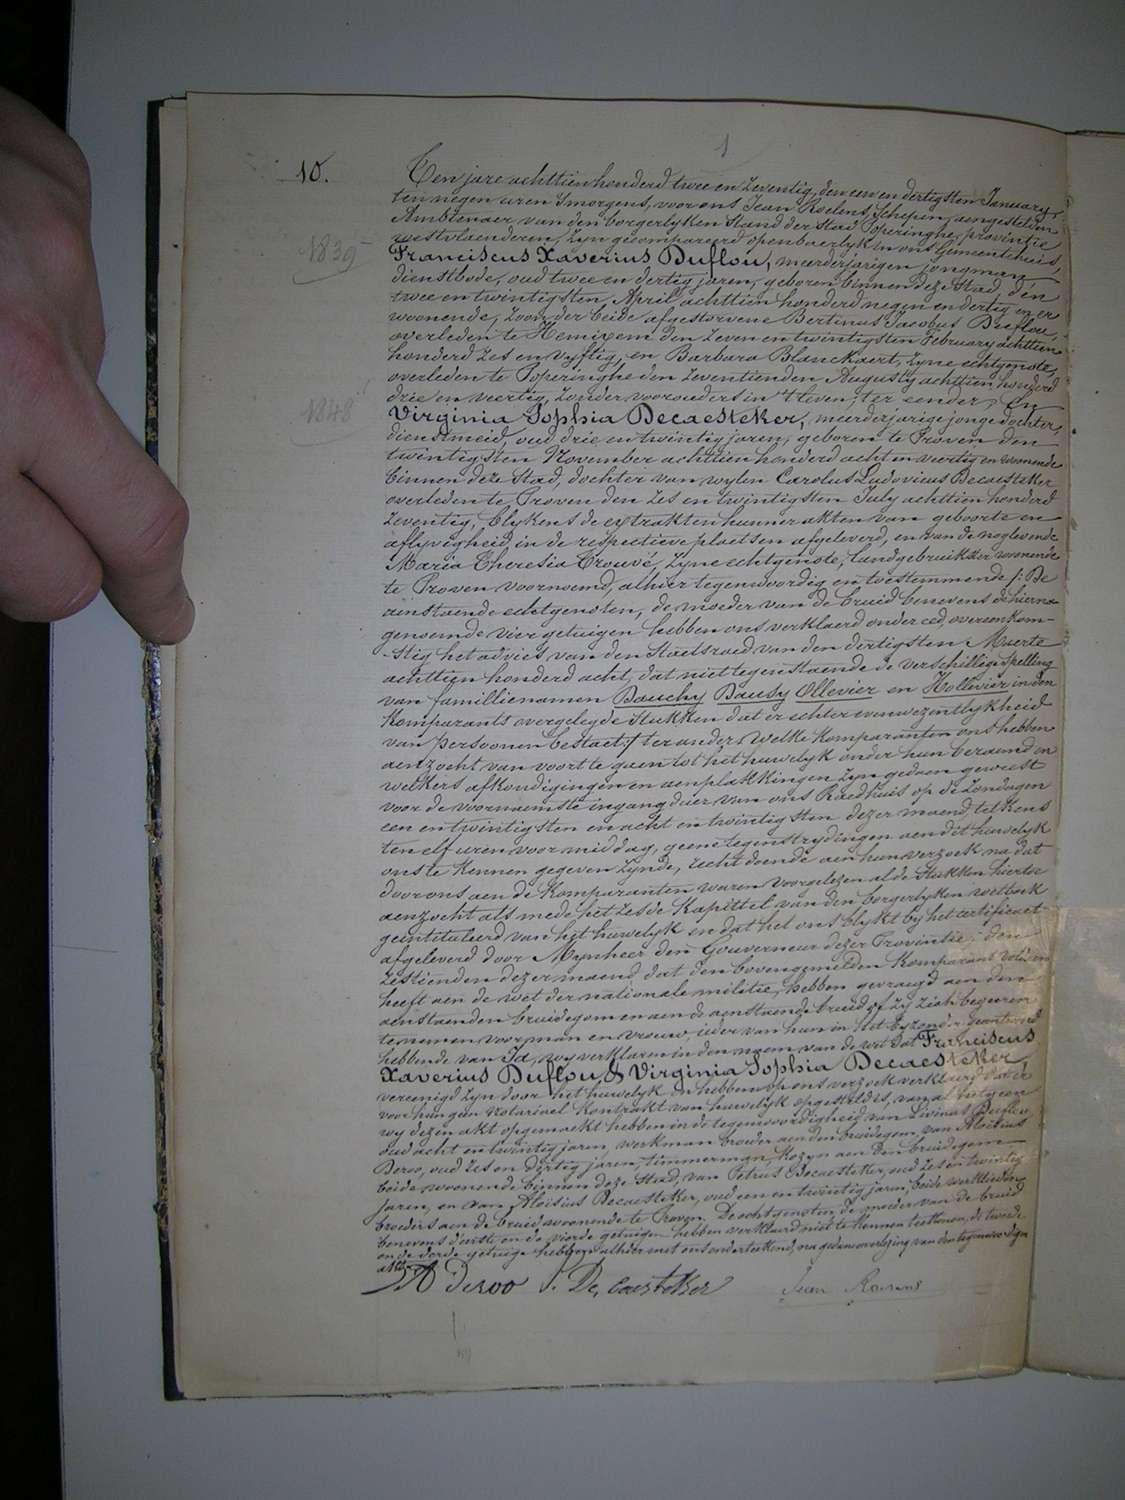 1
10.
Ten jare achttien honderd twee en zeventig, den een en dertigsten January,
ten negen uren 's morgens, voor ons Jean Roelens, Schepen, aengestelden
Ambtenaer van den borgerlyken stand der stad Poperinghe, provintie
westvlaenderen, zyn gecompareerd openbaerlyk in ons Gemeentehuis,
1839
Franciscus Xaverius Duflou, meerderjarigen jongman
dienstbode, oud twee en dertig jaren, geboren binnen deze stad, dén
twee en twintigsten April achttien honderd negen en dertig en er
woonende, zoon der beide afgestorvene Bertinus Jacobus Duflou,
overleden te Hemixem den zeven en twintigsten February achttien
honderd zes en vyftig, en Barbara Blanckaert, zyne echtgenote,
overleden te Poperinghe den zeventienden Augusty achttien honderd
drie en veertig, zonder voorouders in 't leven, ter eender, En
1848
Virginia Sophia Decaesteker, meerderjarige jonge dochter,
dienstmeid, oud drie en twintig jaren, geboren te Proven den
twintigsten November achttien honderd acht en veertig en woonende
binnen deze stad, dochter van wylen Carolus Ludovicus Decaesteker
overleden te Proven den zes en twintigsten July achttien honderd
zeventig, blykens de extrakten hunner akten van geboorte en
aflyvigheid in de respectieve plaetsen afgeleverd, en van de noglevende
Maria Theresia Trouvé, zyne echtgenote, landgebruikster woonende
te Proven voornoemd, alhier tegenwoordig en toestemmende /: De
aenstaende echtgenoten, de moeder van de bruid benevens de hierna
genoemde vier getuigen hebben ons verklaerd onder eed, overeenkom-
-stig het advies van den Staetsraed van den dertigsten Maerte
achttien honderd acht, dat niettegenstaende de verschillige spelling
van familienamen Bauchy Bausy Ollevier en Hollivier in den
komparants overgelegde stukken dat er echter eenwezentlykheid
van persoonen bestaet :/ ter ander. Welke komparanten ons hebben
aenzocht van voort te gaen tot het huwelyk onder hun beraemd en
welkers afkondigingen en aenplakkingen zyn gedaen geweest
voor de voornaemste ingangdeur van ons Raedhuis op de zondagen
een en twintigsten en acht en twintigsten dezer maend, telkens
ten elf uren voormiddag, geene tegenstrydingen aen dit huwelyk
ons te kennen gegeven zynde, recht doende aen hun verzoek na dat
door ons aen de komparanten waren voorgelezen al de stukken hiertoe
aenzocht als mede het zesde kapittel van den borgerlyken wetboek
geintituleerd van het huwelyk en dat het ons blykt by het certificaet
afgeleverd door Mynheer den Gouverneur dezer Provintie, den
zestienden dezer maend, dat den bovengemelden komparant voldaen
heeft aen de wet der nationale militie, hebben gevraegd aen den
aenstaenden bruidegom en aen de aenstaende bruid of zy zich begeeren
te nemen voor man en vrouw, ieder van hun in het byzonder geantwoord
hebbende van Ja, wy verklaren in den naem van de wet dat Franciscus
Xaverius Duflou & Virginia Sophia Decaesteker,
vereenigd zyn door het huwelyk en hebben op ons verzoek verklaerd dat er
voor hun geen notarieel kontrakt van huwelyk opgesteld is, van al hetgeen
wy dezen akt opgemaekt hebben in de tegenwoordigheid van Livinus Duflou
oud acht en twintig jaren, werkman broeder aen den bruidegom, van Aloisius
Deroo, oud zes en dertig jaren, timmerman, kozyn aen den bruidegom
beide woonende binnen deze stad, van Petrus Decaesteker, oud zes en twintig
jaren, en van Aloïsius Decaesteker, oud een en twintig jaren, beide werklieden
broeders aen de bruid woonende te Proven. De echtgenoten, de moeder van de bruid
benevens d'eerste en de vierde getuigen hebben verklaerd niet te kunnen teekenen, de tweede
en de derde getuige hebben alhier met ons onderteekend, na gedane voorlezing van den tegenwoordigen
akte.
A Deroo P. De Caesteker Jean Roelens